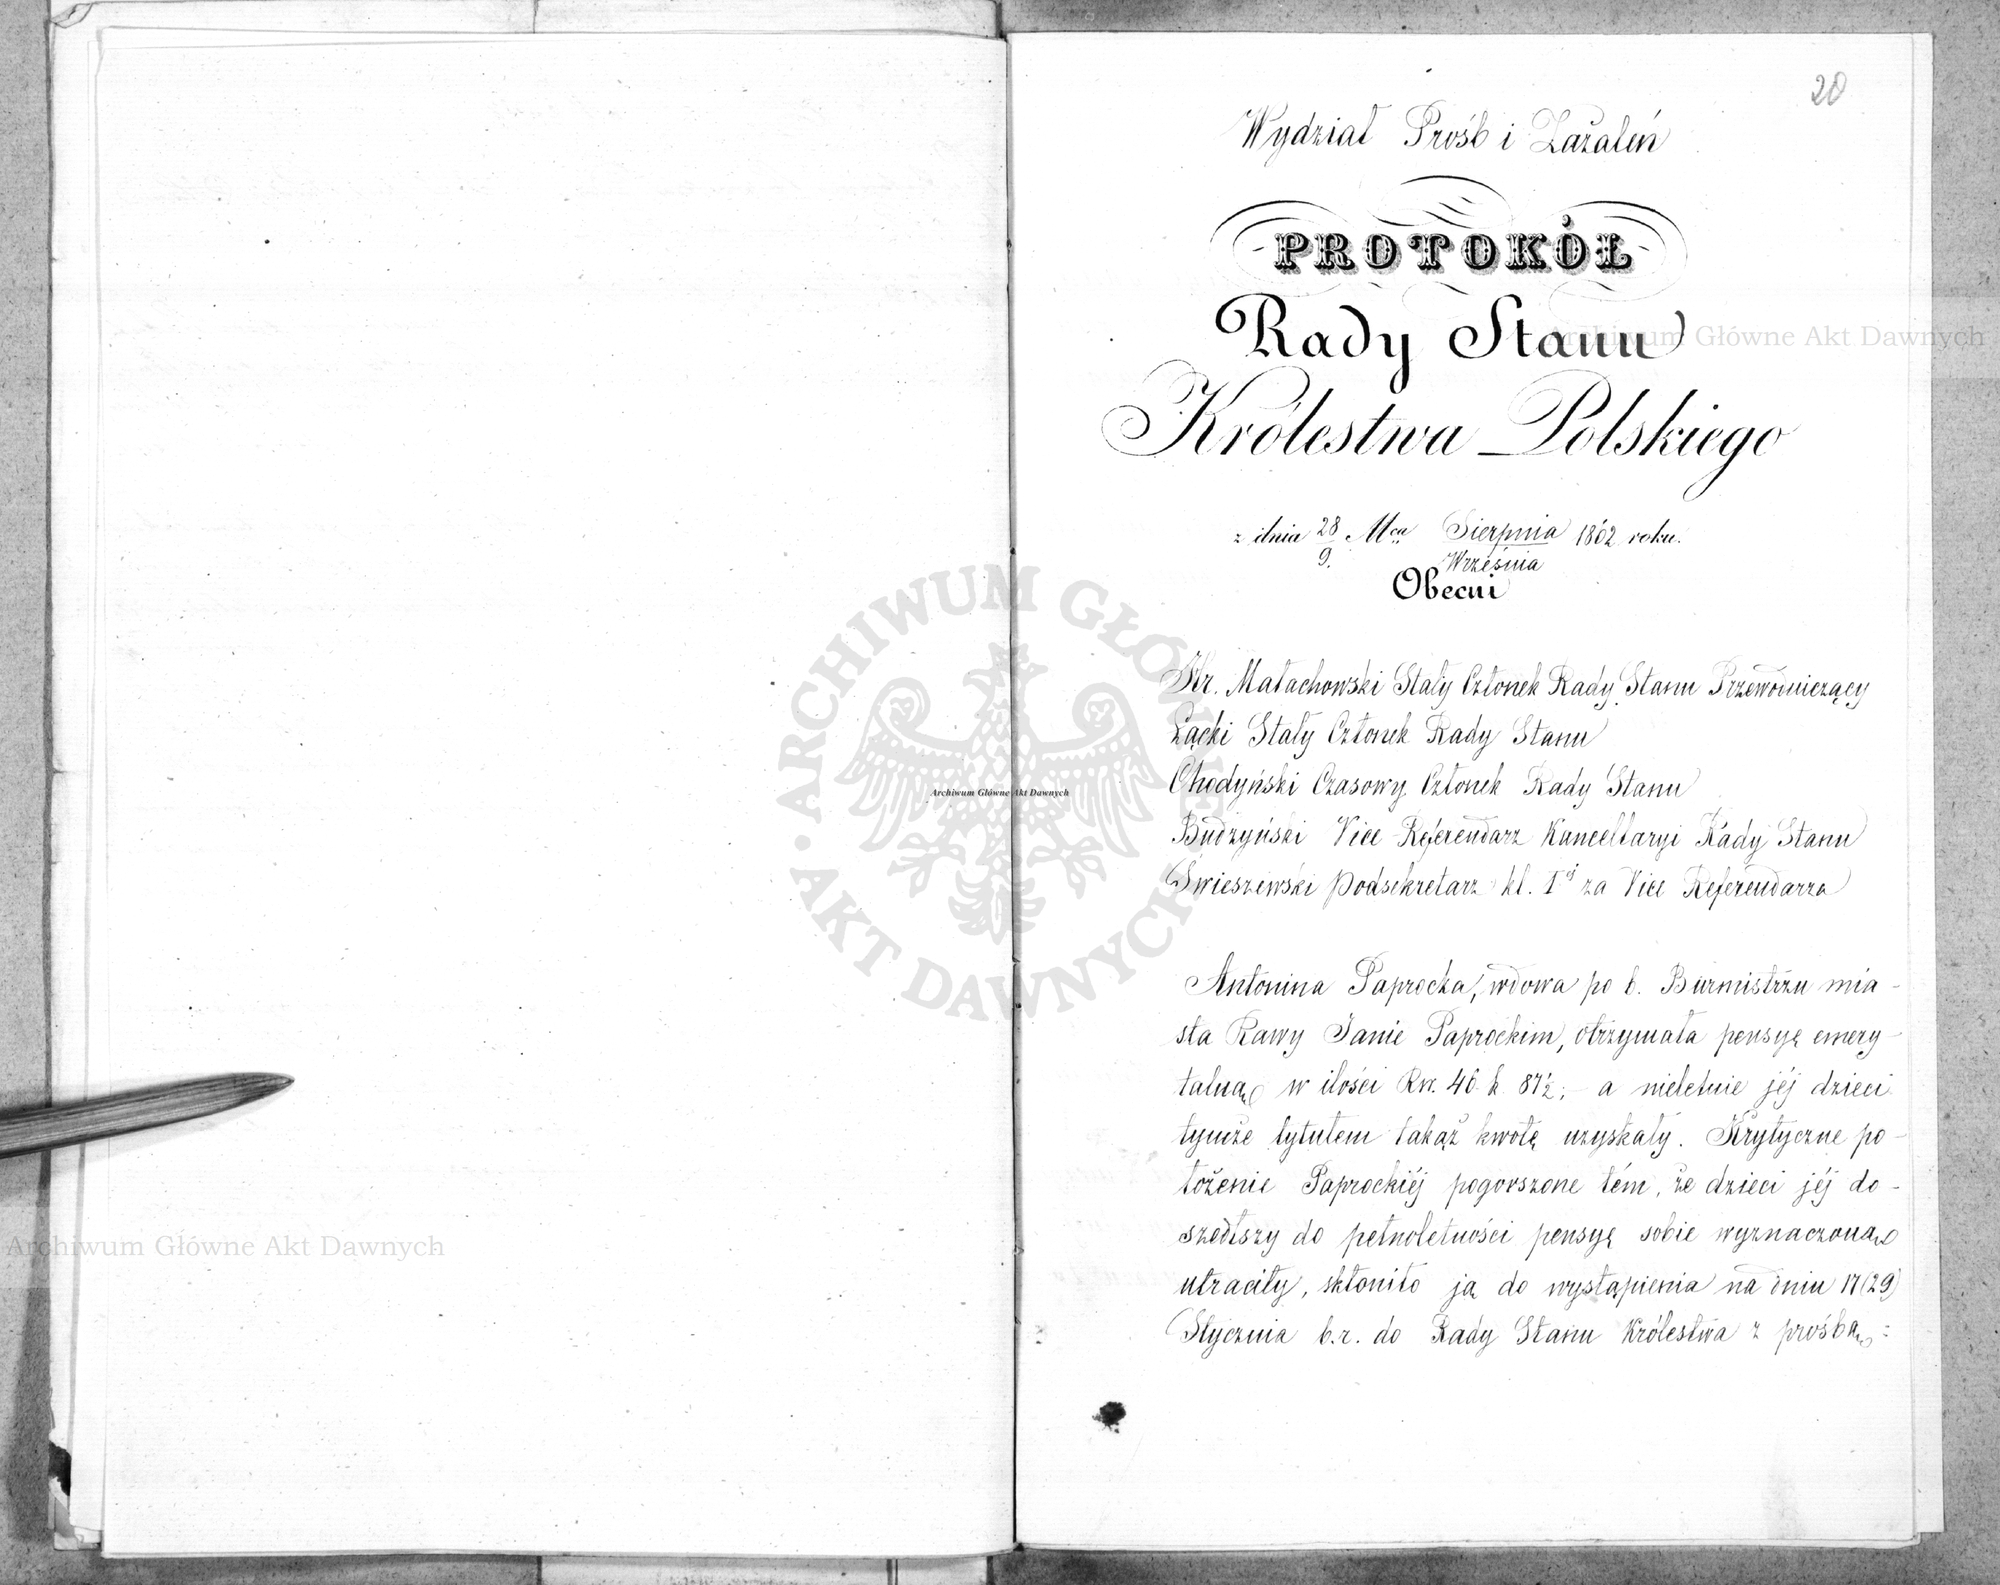 20
Wydział Prośb i Zażaleń
PROTOKÓŁ
Rady Stanu
Królestwa Polskiego
z dnia 28/9. Mca Sierpnia/Września 1862 roku.
Obecni
Hr. Małachowski Stały Członek Rady Stanu Przewodniczący
Łącki Stały Członek Rady Stanu
Chodyński Czasowy Członek Rady Stanu
Budzyński Vice Referendarz Kancellaryi Rady Stanu
Świeszewski Podsekretarz kl. Iéj za Vice Referendarza
Antonina Paprocka, wdowa po b. Burmistrzu mia-
sta Rawy Janie Paprockim, otrzymała pensyę emery-
talną w ilości Rsr. 46 k. 87½; - a nieletnie jéj dzieci
tymże tytułem takąż kwotę uzyskały. Krytyczne po-
łożenie Paprockiéj pogorszone tém, że dzieci jéj do-
szedłszy do pełnoletności pensyę sobie wyznaczoną
utraciły, skłoniło ją do wystąpienia na dniu 17(29)
Stycznia b.r. do Rady Stanu Królestwa z prośbą:
Archiwum Główne Akt Dawnych
ARCHIWUM GŁÓWNE AKT DAWNYCH
Archiwum Główne Akt Dawnych
Archiwum Główne Akt Dawnych